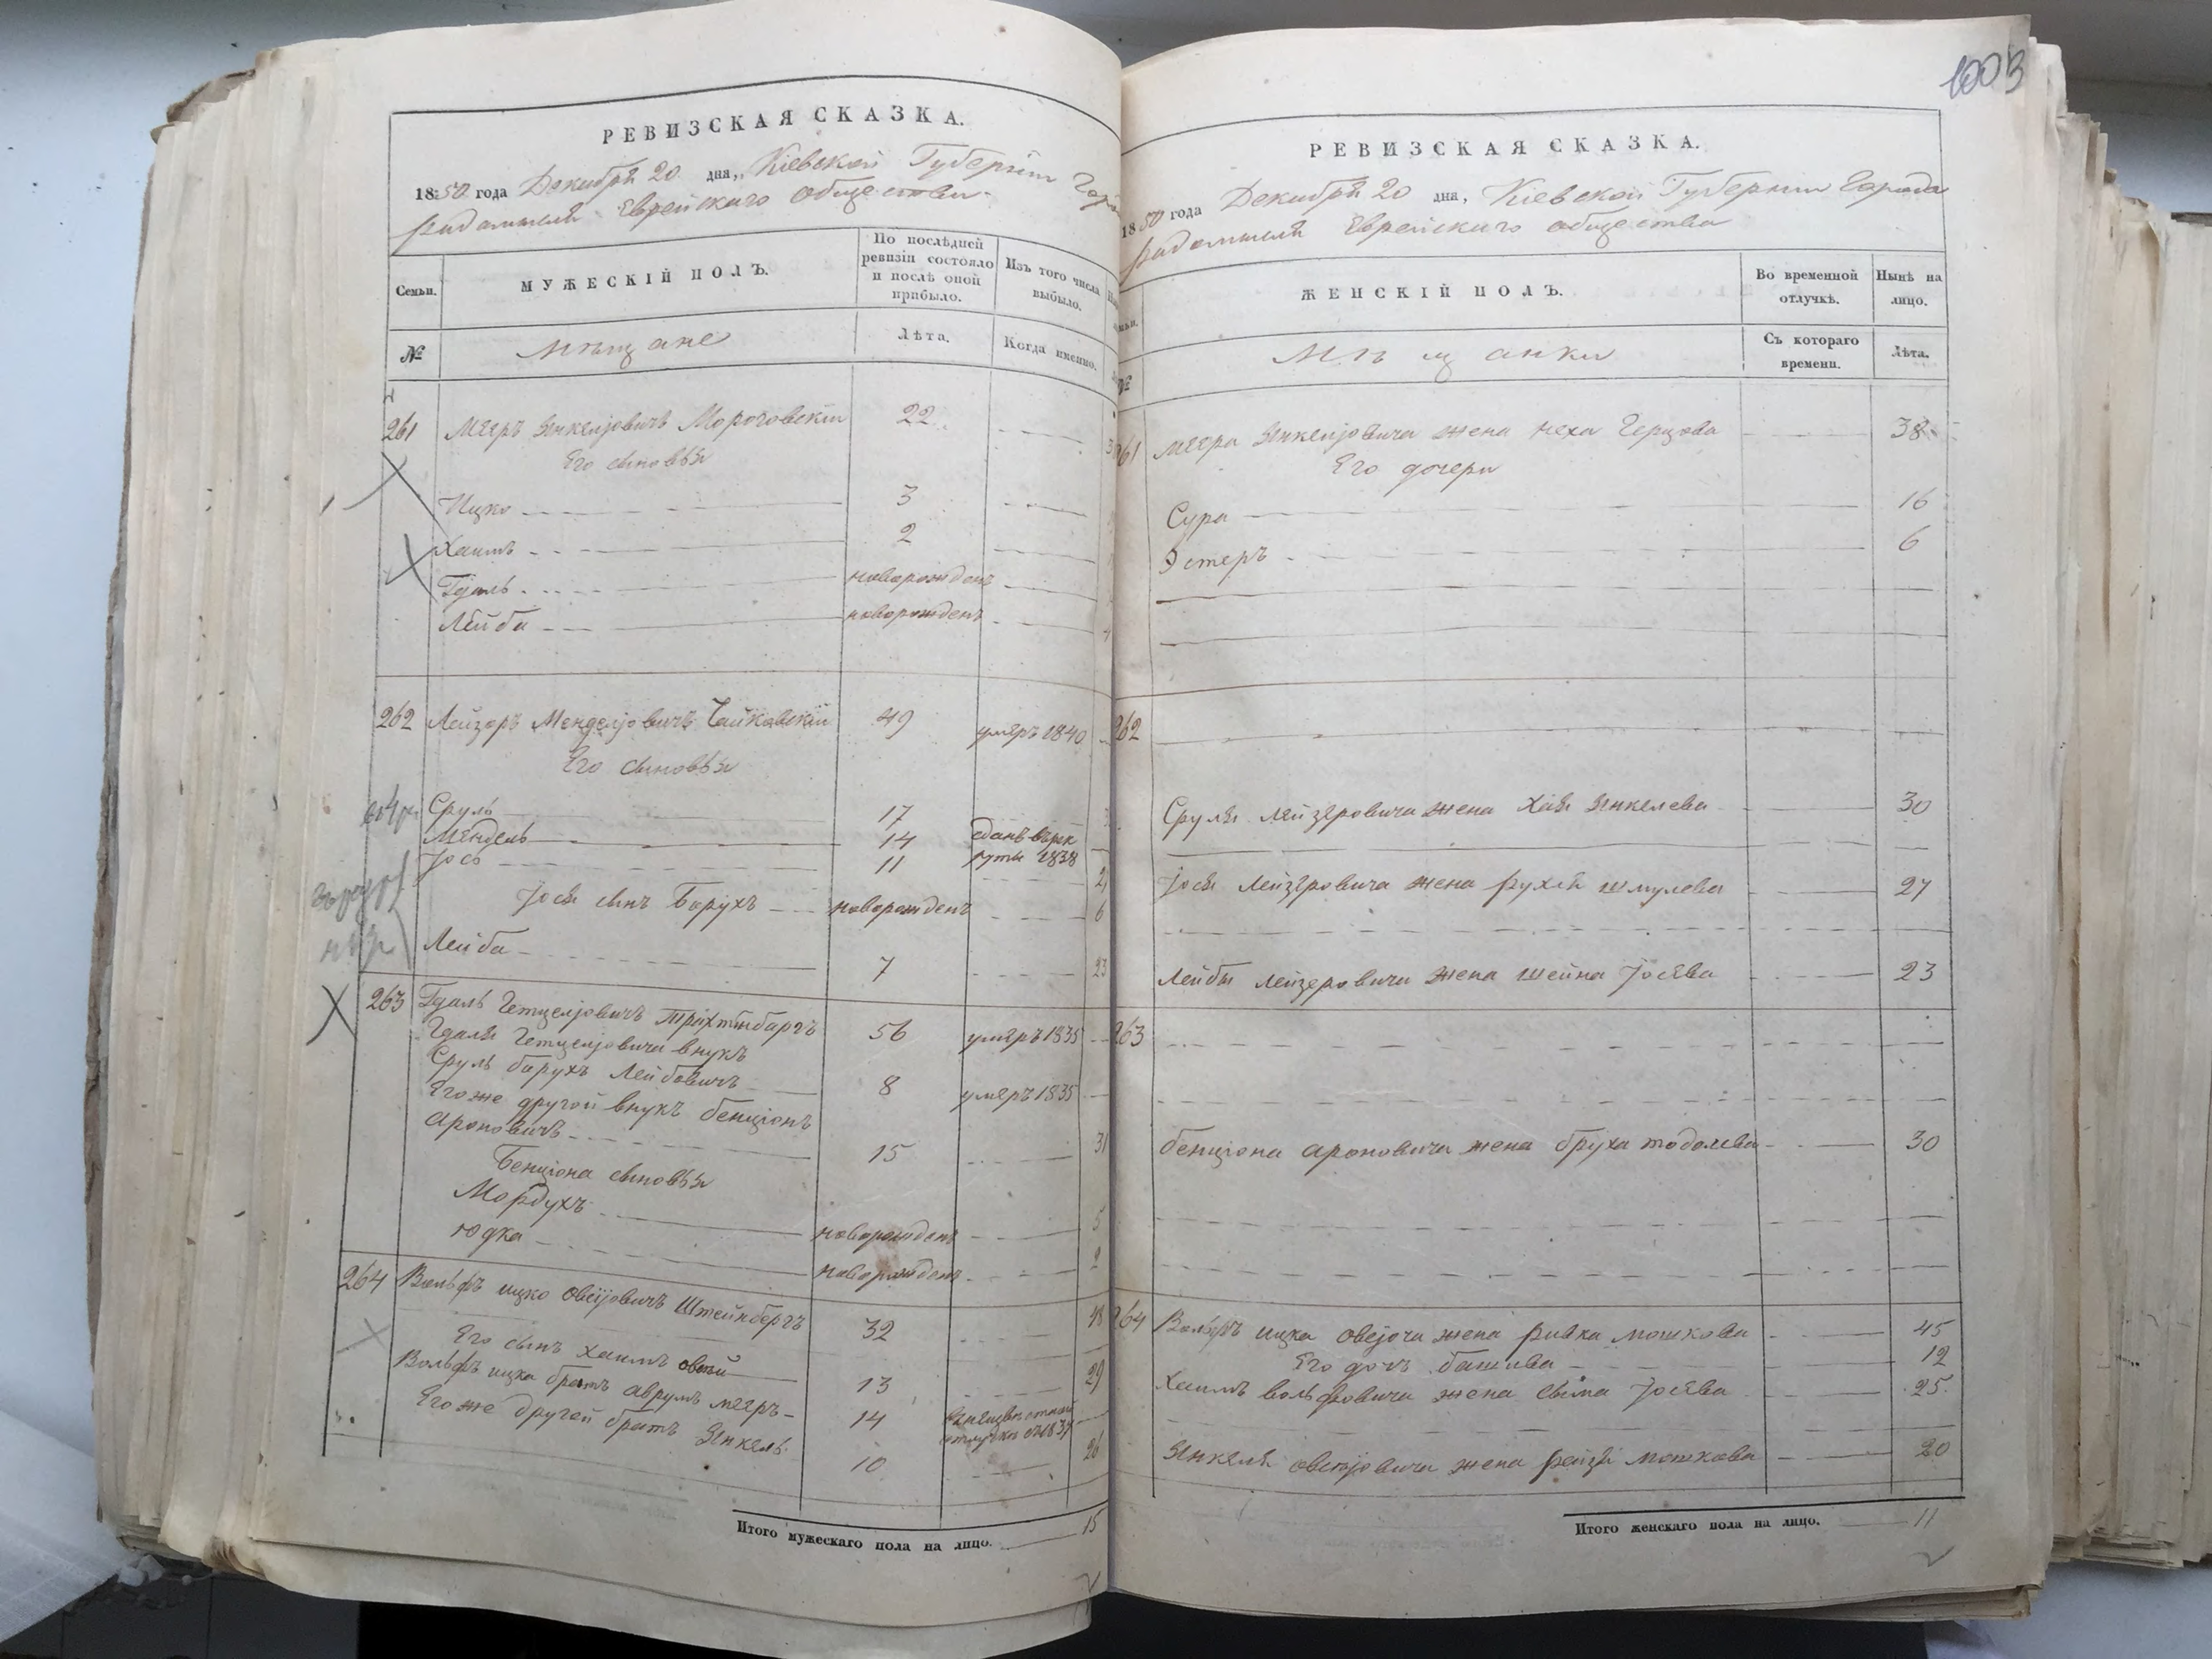 РЕВИЗСКАЯ СКАЗКА.
1850 года Декабря 20 дня, Кіевской Губерніи
Радомысля Еврейскаго общества
Семьи.
МУЖЕСКІЙ ПОЛЪ.
По послѣдней ревизіи состояло и послѣ оной прибыло.
Изъ того числа выбыло.
№
мѣщане
Лѣта.
Когда именно.
261 Мееръ Янкеліовичъ Мороговскій 22
Его сыновья
Ицко 3
Хаимъ 2
Гдаль новорожденъ
Лейба новорожденъ
262 Лейзоръ Менделіовичъ Чайковскій 49 умеръ 1840
Его сыновья
Сруль 17
Мендель 14 сданъ в рек
Іось 11 руты 1838
Іося сынъ Борухъ новорожденъ 6
Лейба 7 23
263 Гдаль Гетцеліовичъ 56 умеръ 1835
Гдаля Гетцеліовича внукъ
Сруль Борухъ Лейбовичъ 8 умеръ 1835
Его же другой внукъ Бенціонъ
Ароновичъ 15 31
Бенціона сыновья
Мордухъ новорожденъ 5
Юдка новорожденъ 2
264 Вольфъ Ицко Овсіовичъ Штейнбергъ 32 48
Его сынъ Хаимъ 13 29
Вольфъ Ицка братъ Аврумъ Мееръ 14
Его же другой братъ Янкель 10 26
Итого мужескаго пола на лицо. 15
1003
РЕВИЗСКАЯ СКАЗКА.
1850 года Декабря 20 дня, Кіевской Губерніи Города
Радомысля Еврейскаго общества
ЖЕНСКІЙ ПОЛЪ.
Во временной отлучкѣ.
Нынѣ на лицо.
№
мѣщанки
Съ котораго времени.
Лѣта.
261 Меера Янкеліовича жена Неха Герцова 38
Его дочери
Сура 16
Эстеръ 6
262
Сруля Лейзеровича жена Хая Янкелева 30
Іося Лейзеровича жена Рухля Шмулева 27
Лейбы Лейзеровича жена Шейна Іосева 23
263
Бенціона Ароновича жена Бруха Тодолева 30
264 Вольфъ Ицка жена Ривка Мошкова 45
Его дочь Башива 12
Хаимъ Вольфовича жена Сыма Іосева 25
Янкеля жена Рейзя Мошкова 20
Итого женскаго пола на лицо. 11